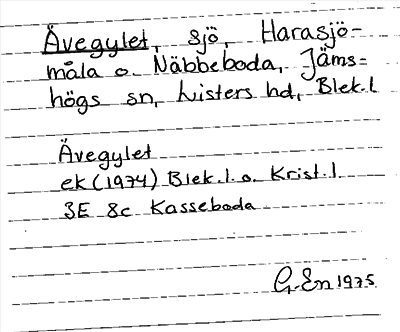 Ävegylet, sjö, Harasjö-
måla o. Näbbeboda, Jäms=
högs sn, Listers hd, Blek. l
Ävegylet
ek (1974) Blek. l. o. Krist. l.
3E 8c Kasseboda
G. En 1975